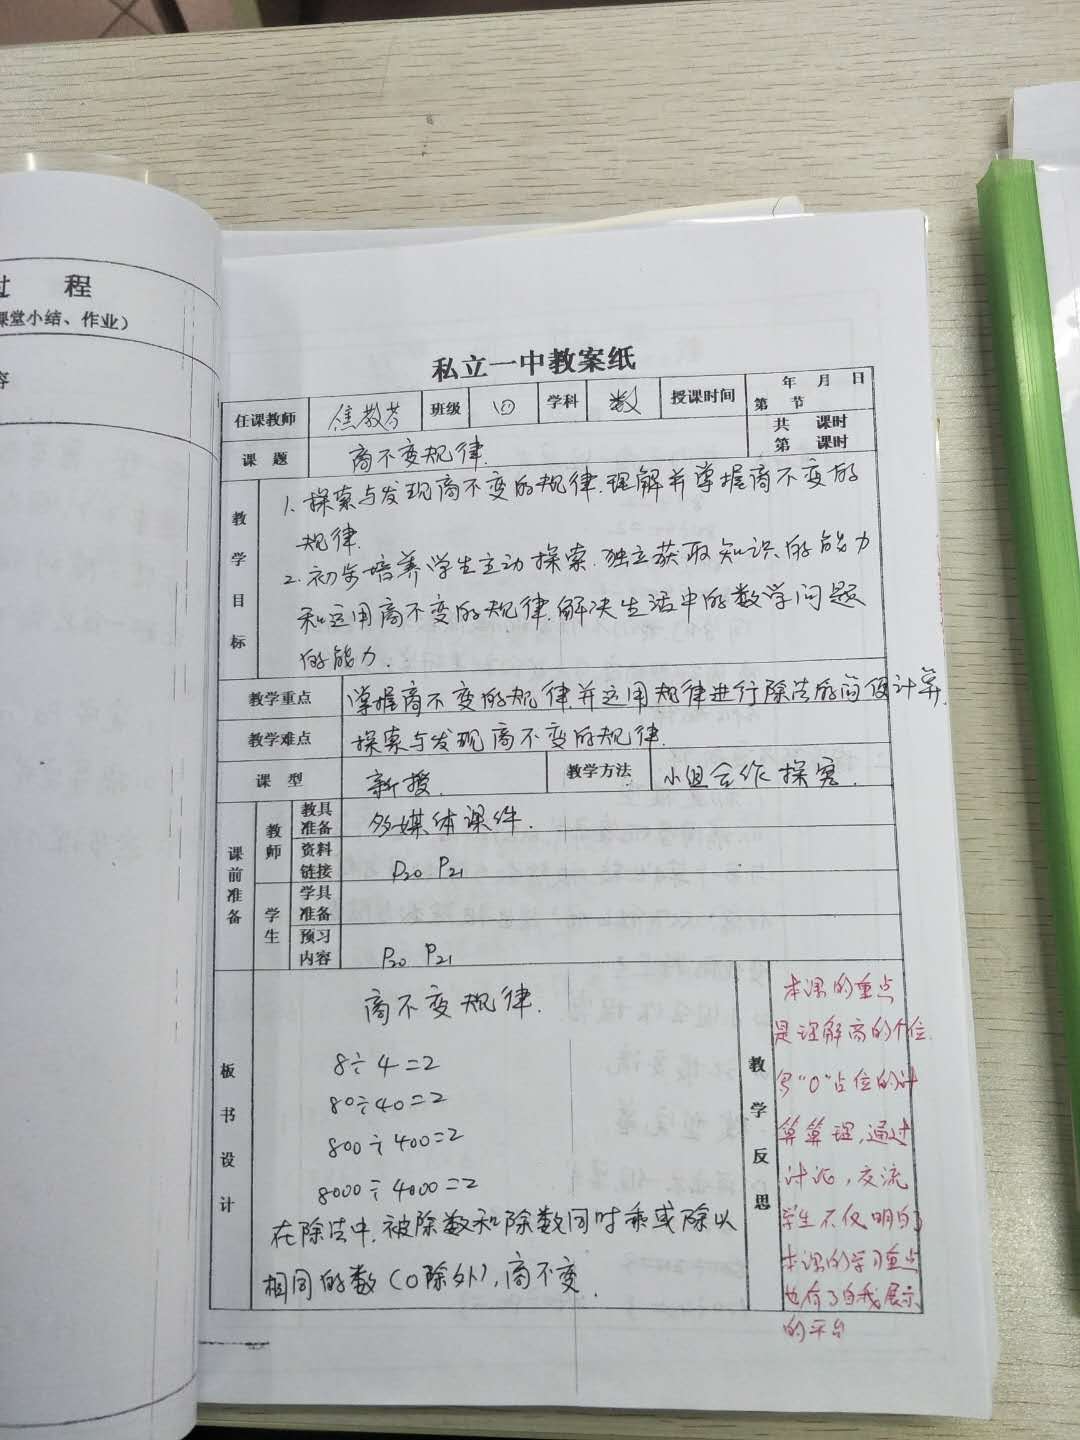 过 程
课堂小结、作业）
容
私立一中教案纸
任课教师 焦教芳 班级 四 学科 数 授课时间 年 月 日
第 节
课 题 商不变规律. 共 课时
第 课时
教学目标
1. 探索与发现商不变的规律.理解并掌握商不变的
规律.
2. 初步培养学生主动探索.独立获取知识的能力
和运用商不变的规律.解决生活中的数学问题
的能力.
教学重点 掌握商不变的规律.并应用规律进行除法的简便计算.
教学难点 探索与发现商不变的规律.
课 型 新授. 教学方法 小组合作探究.
课前准备
教师
教具准备 多媒体课件.
资料链接 P20 P21
学生
学具准备
预习内容 P20 P21
板书设计
商不变规律.
8÷4=2
80÷40=2
800÷400=2
8000÷4000=2
在除法中.被除数和除数同时乘或除以
相同的数(0除外),商不变.
教学反思
本课的重点
是理解商的个位.
写“0”占位的计
算算理,通过
讨论,交流
学生不仅明白了
本课的学习重点
也有了自我展示
的平台